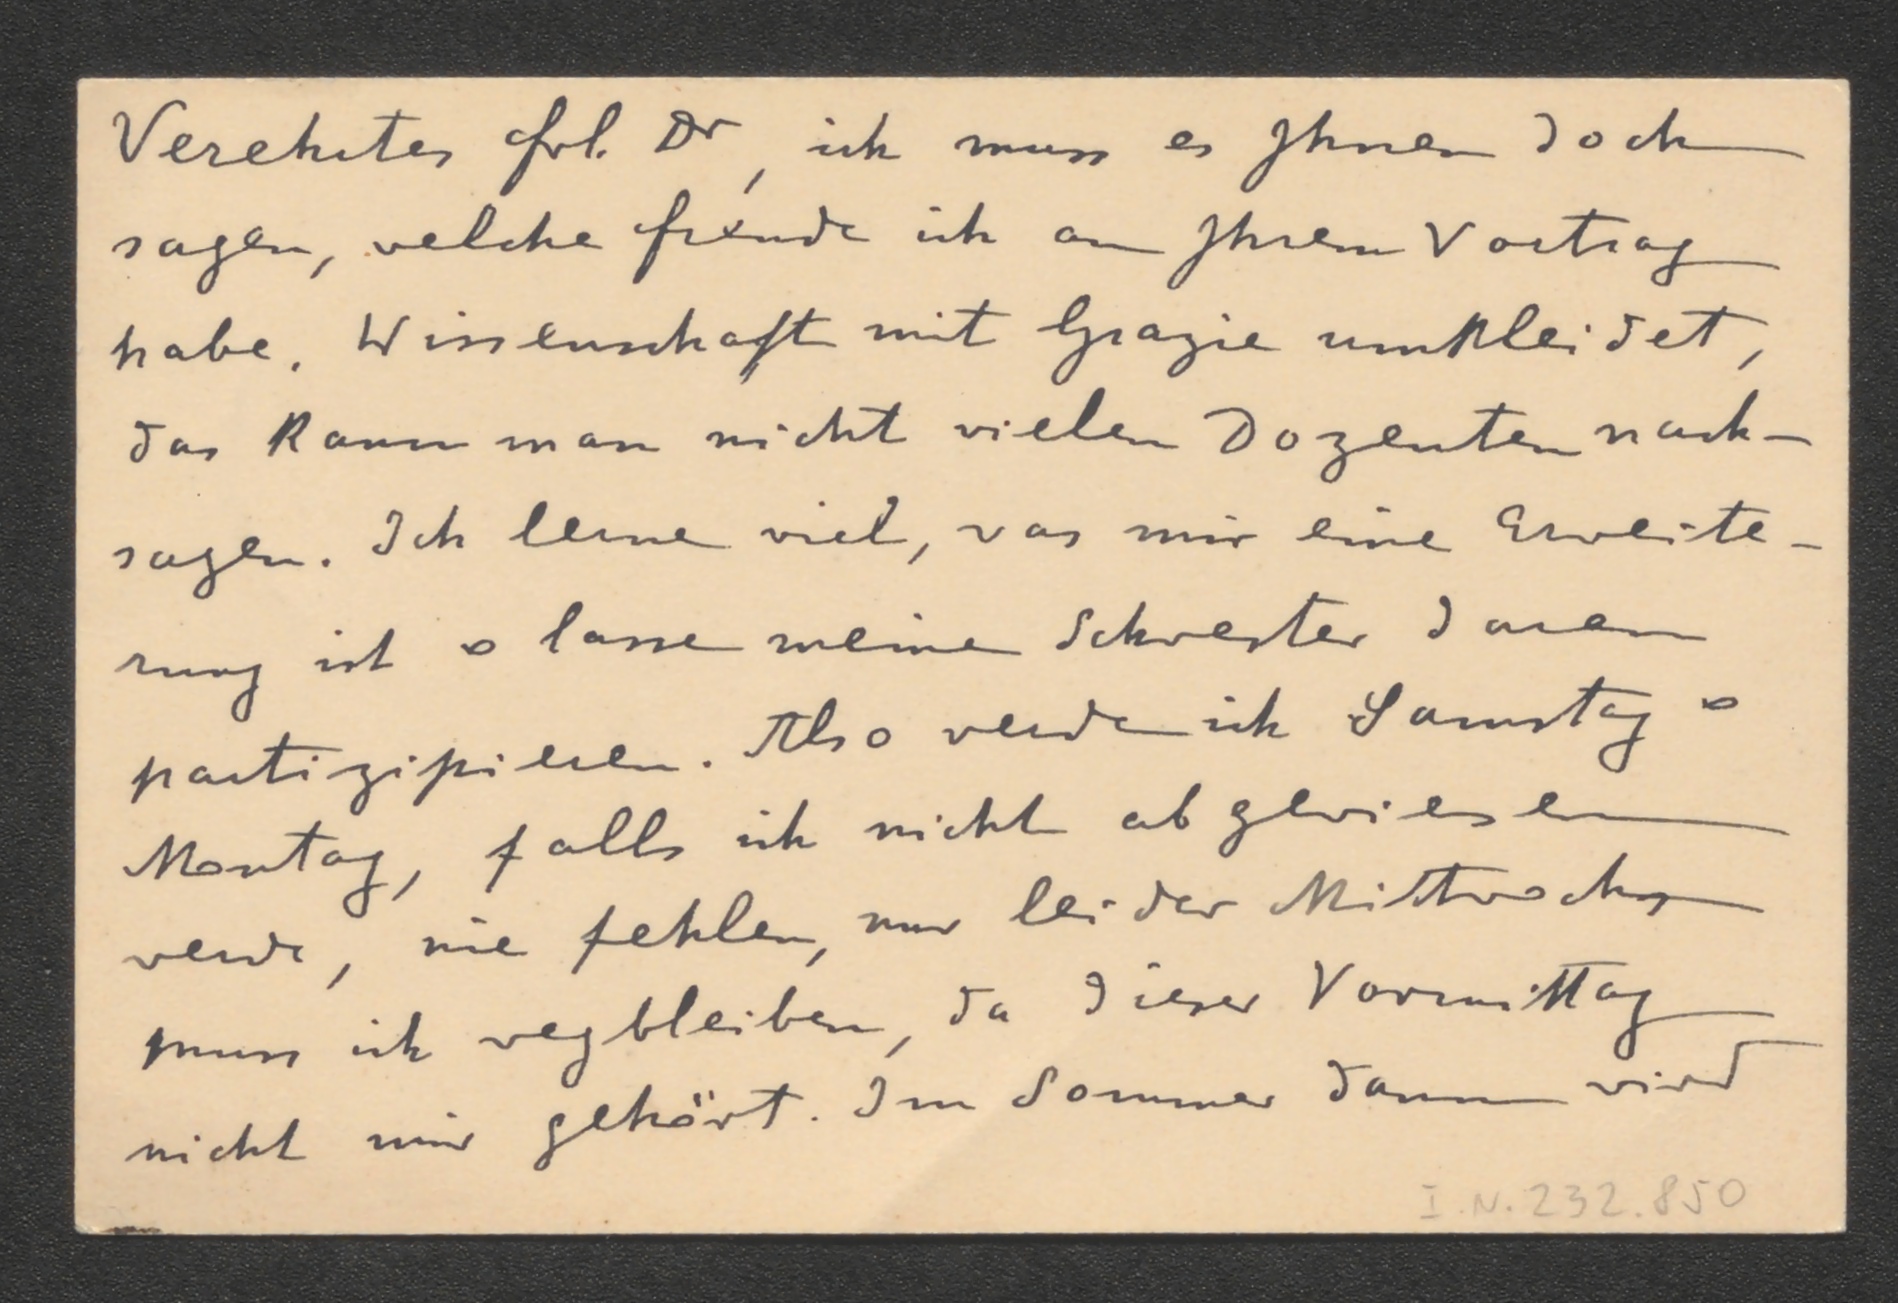 Verehrtes Frl. Dr, ich muss es Ihnen doch
sagen, welche Freude ich an Ihrem Vortrag
habe. Wissenschaft mit Grazie umkleidet,
das kann man nicht vielen Dozenten nach-
sagen. Ich lerne viel, was mir eine Erweite-
rung ist & lasse meine Schwester daran
partizipieren. Also werde ich Samstag &
Montag, falls ich nicht abgewiesen
werde, nie fehlen, nur leider Mittwochs
muss ich wegbleiben, da dieser Vormittag
nicht mir gehört. Im Sommer dann wird
I.N. 232.850